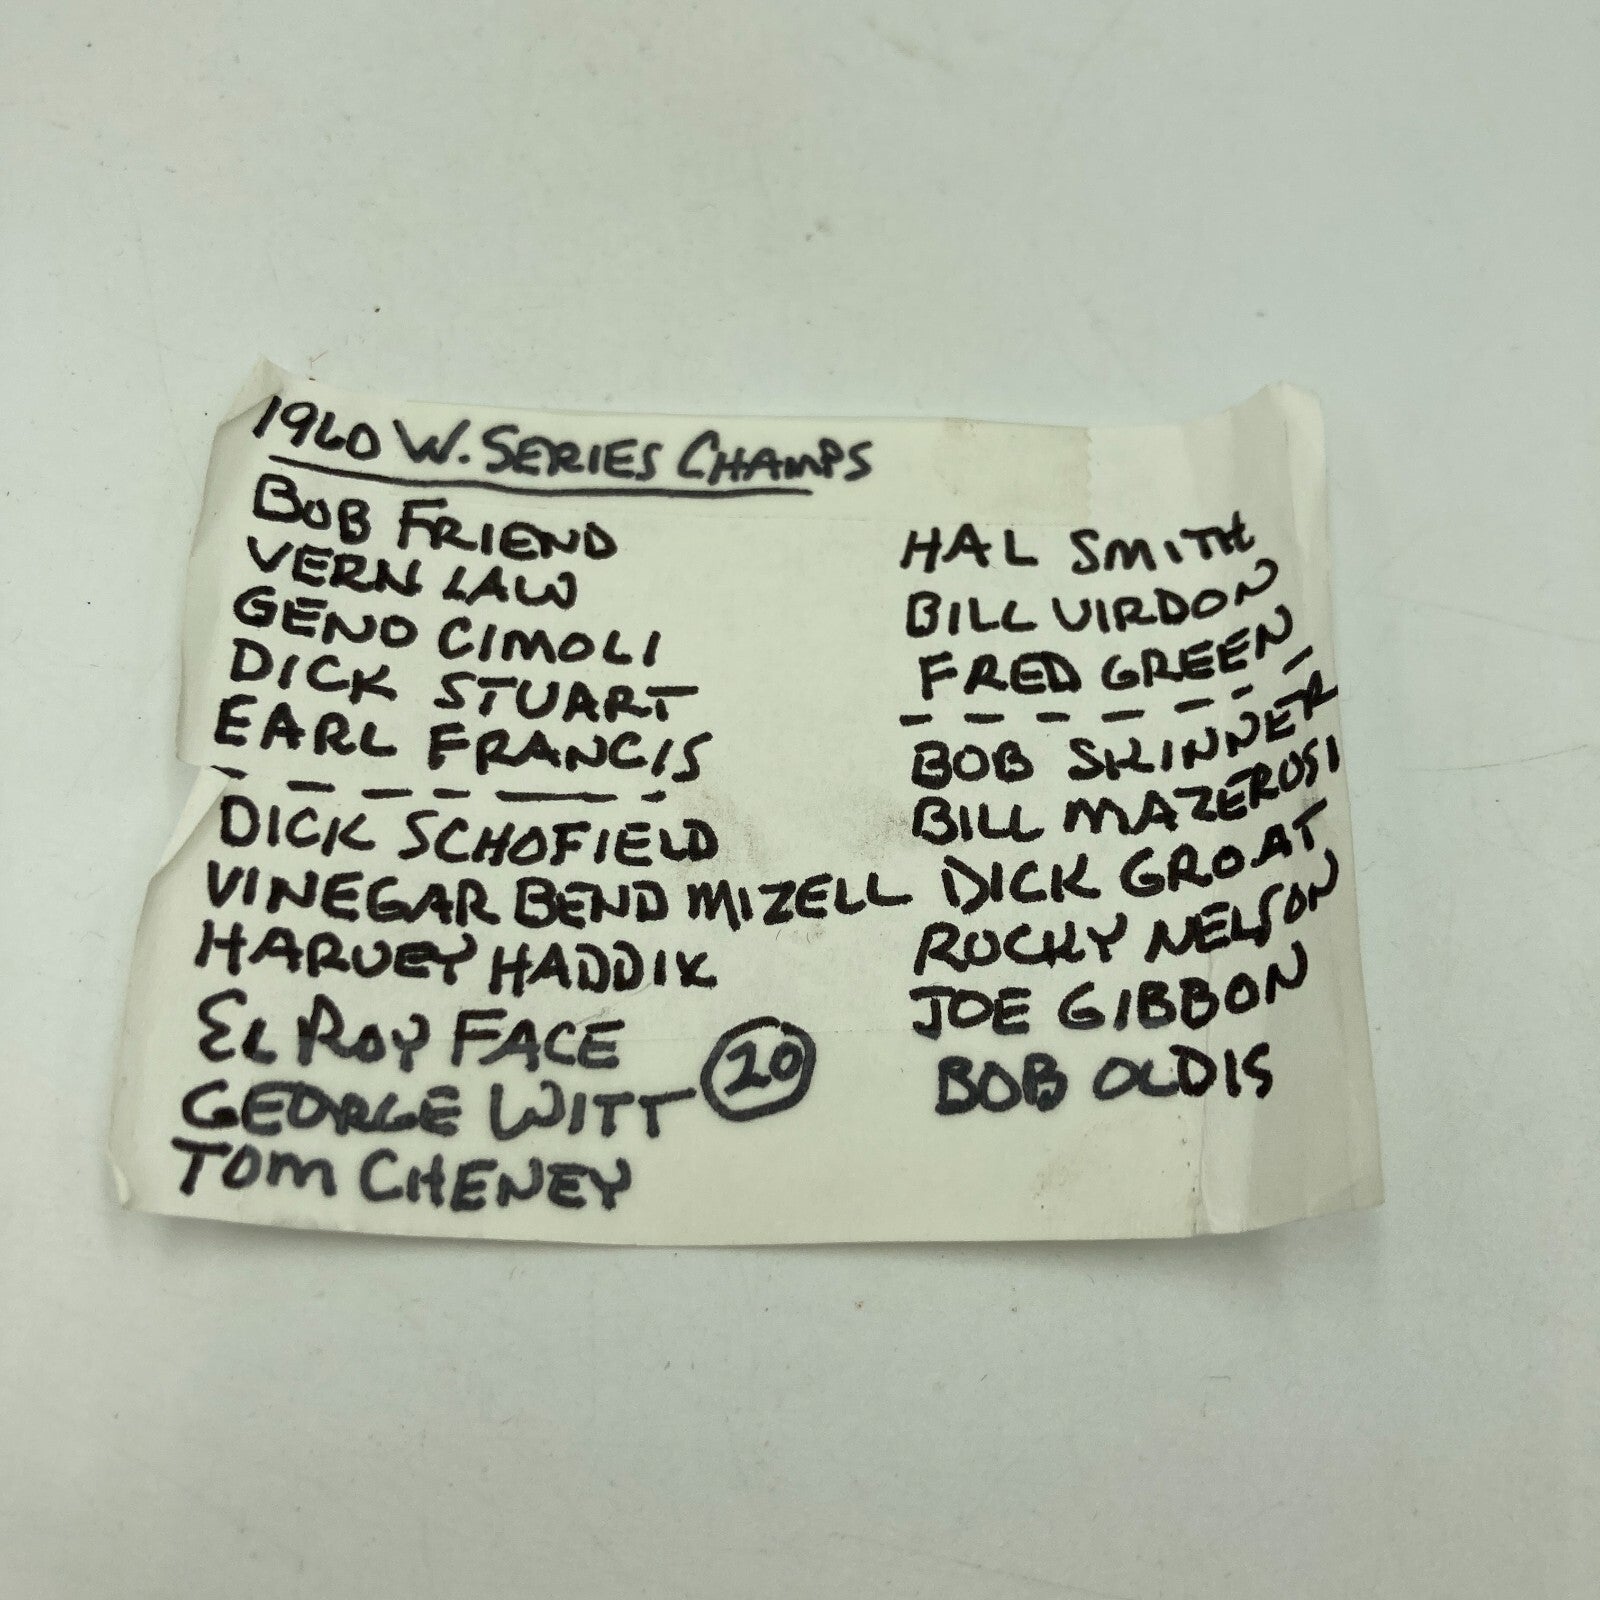 1960 W. SERIES CHAMPS
BOB FRIEND
VERN LAW
GENO CIMOLI
DICK STUART
EARL FRANCIS
DICK SCHOFIELD
VINEGAR BEND MIZELL
HARVEY HADDIX
EL ROY FACE
GEORGE WITT
TOM CHENEY
20
HAL SMITH
BILL VIRDON
FRED GREEN
BOB SKINNER
BILL MAZEROSI
DICK GROAT
ROCKY NELSON
JOE GIBBON
BOB OLDIS